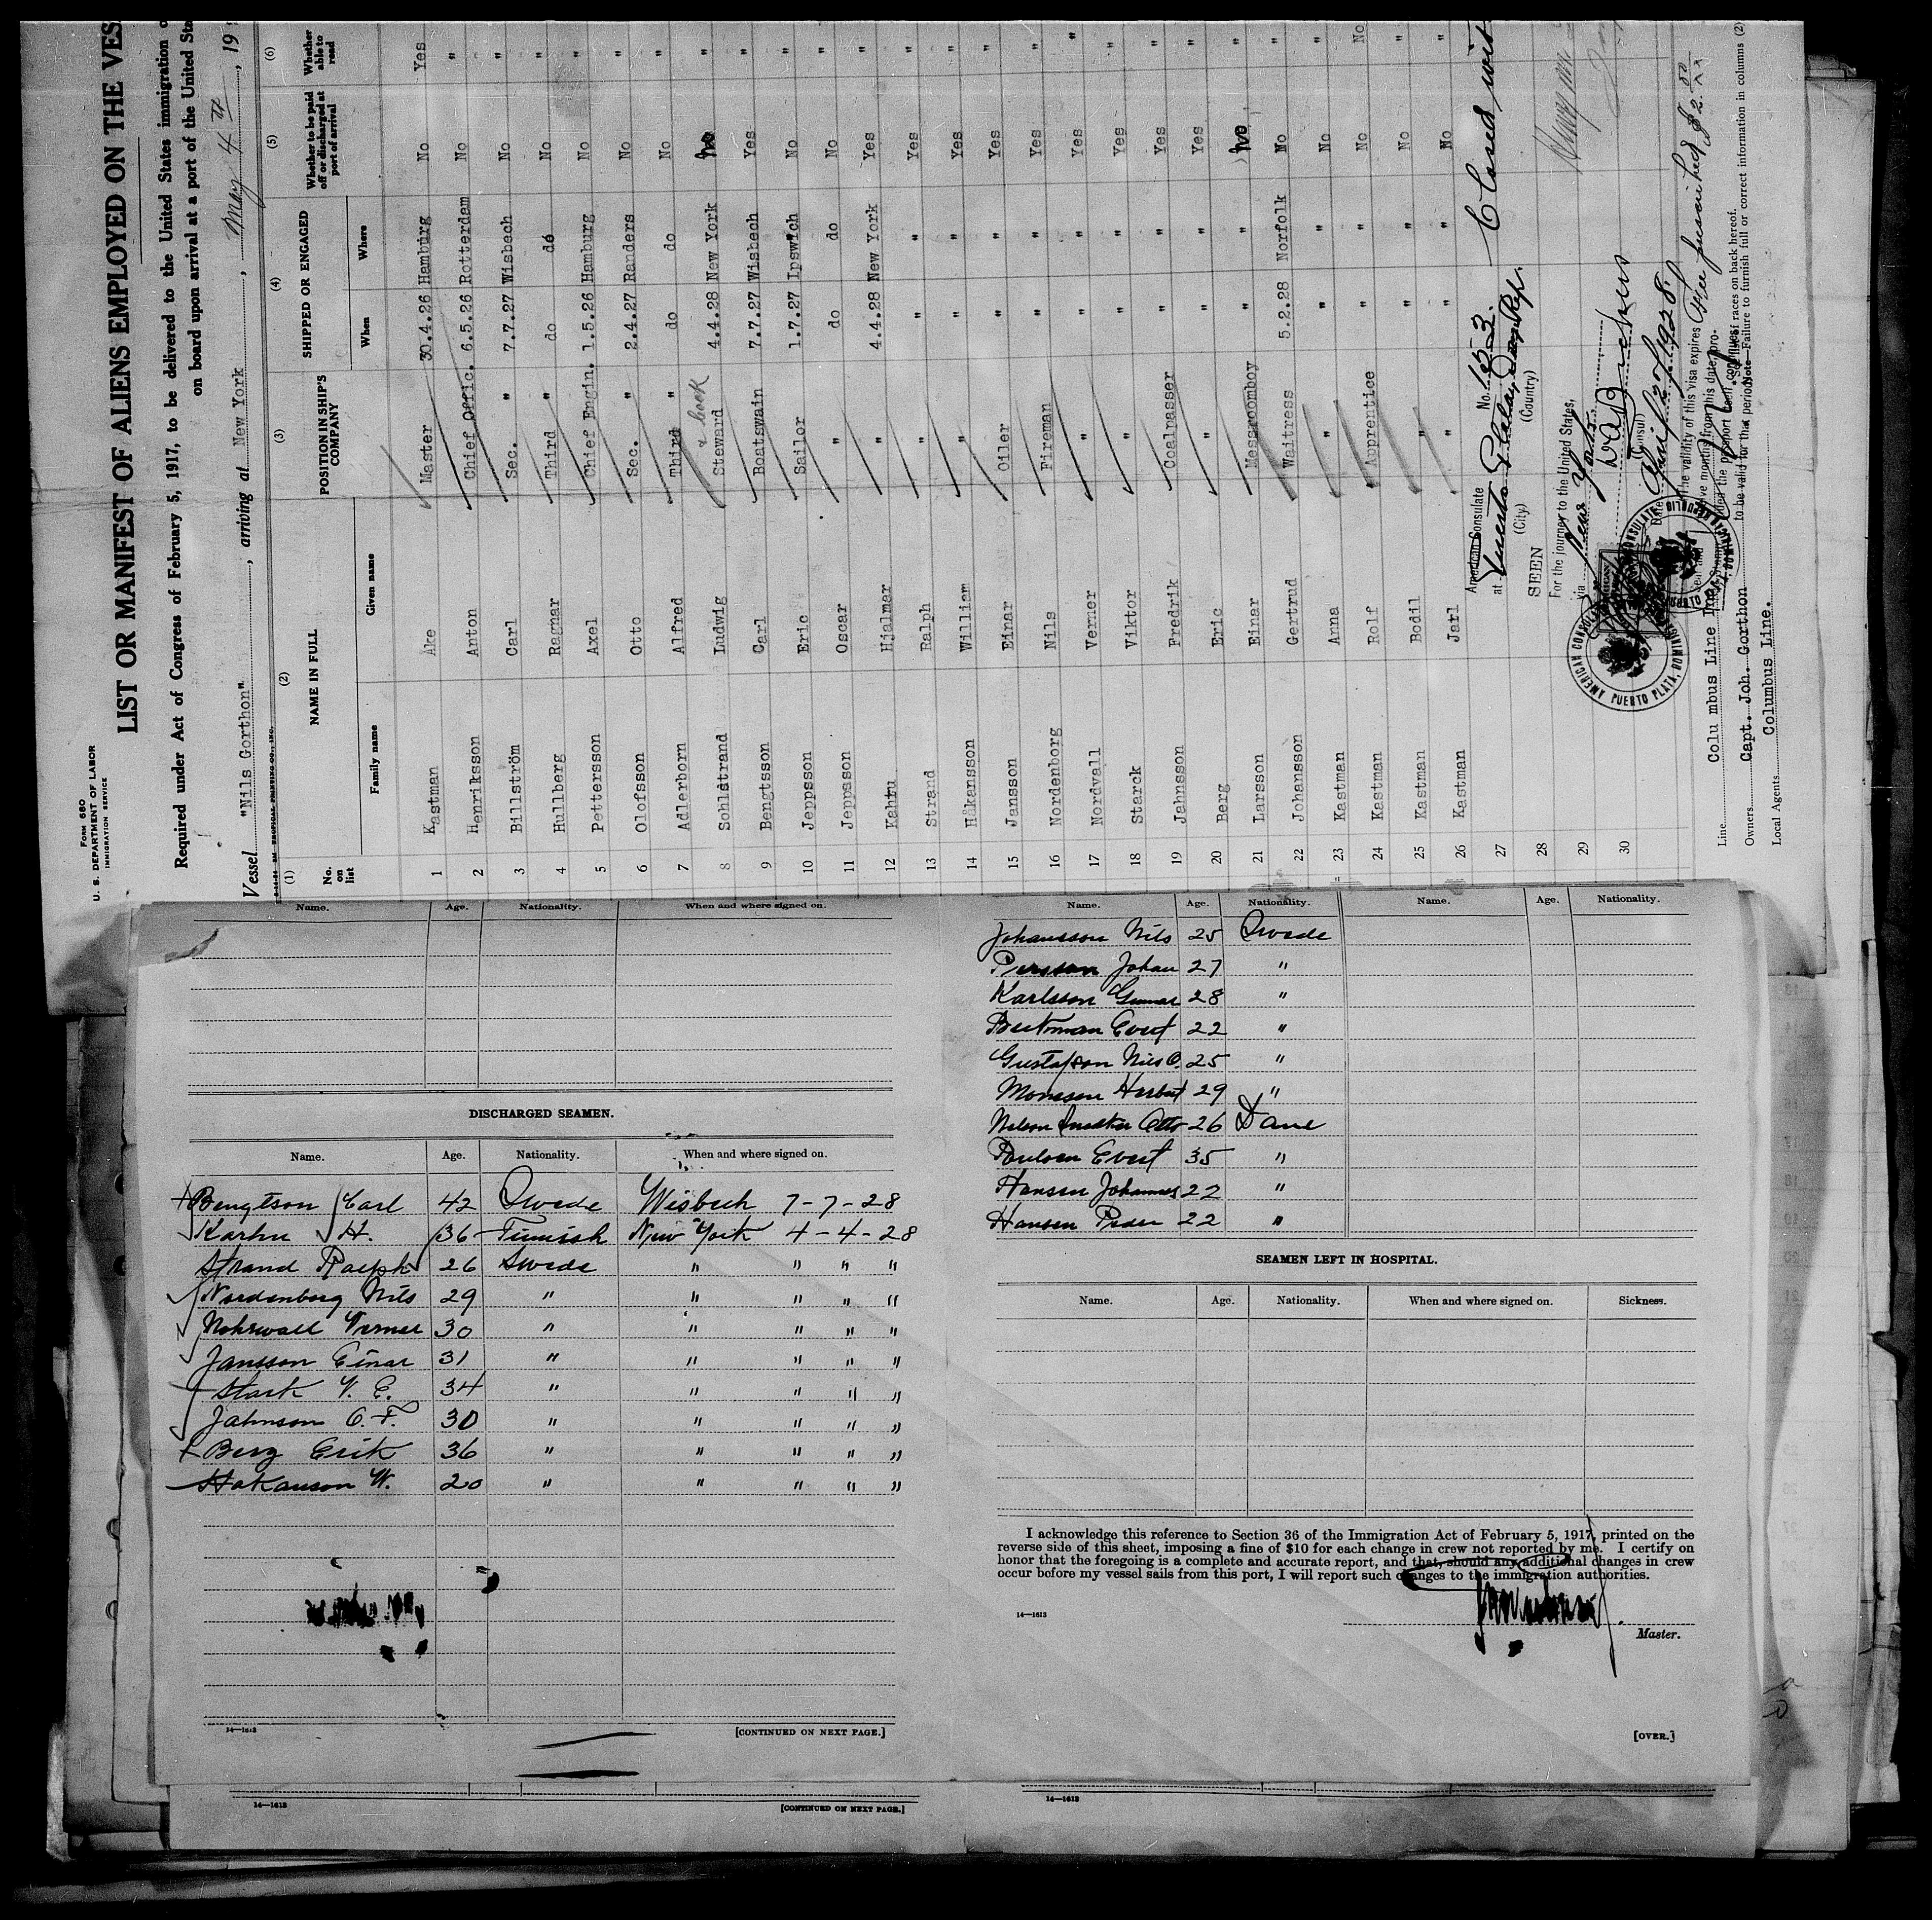 FORM 680
U. S. DEPARTMENT OF LABOR
IMMIGRATION SERVICE
LIST OR MANIFEST OF ALIENS EMPLOYED ON THE VES
Required under Act of Congress of February 5, 1917, to be delivered to the United States immigration
on board upon arrival at a port of the United Sta
Vessel "Nils Gorthon", arriving at New York, May 4th, 19
(1) (2) (3) (4) (5) (6)
No. on list NAME IN FULL POSITION IN SHIP'S COMPANY SHIPPED OR ENGAGED Whether to be paid off or discharged at port of arrival Whether able to read
Family name Given name When Where
1 Kastman Ake Master 30.4.26 Hamburg No Yes
2 Henriksson Anton Chief Offic. 6.5.26 Rotterdam No "
3 Billström Carl Sec. " 7.7.27 Wisbech No "
4 Hullberg Ragnar Third " do do No "
5 Pettersson Axel Chief Engin. 1.5.26 Hamburg No "
6 Olofsson Otto Sec. " 2.4.27 Randers No "
7 Adlerborn Alfred Third " do do No "
8 Sohlstrand Ludwig Steward & cook 4.4.28 New York No "
9 Bengtsson Carl Boatswain 7.7.27 Wisbech Yes "
10 Jeppsson Eric Sailor 1.7.27 Ipswich No "
11 Jeppsson Oscar " do do No "
12 Kahtu Hjalmar " 4.4.28 New York Yes "
13 Strand Ralph " " " Yes "
14 Håkansson William " " " Yes "
15 Jansson Einar Oiler " " Yes "
16 Nordenborg Nils Fireman " " Yes "
17 Nordvall Verner " " " Yes "
18 Starck Viktor " " " Yes "
19 Jahnsson Fredrik Coalpasser " " Yes "
20 Berg Eric " " " Yes "
21 Larsson Einar Messroomboy " " No "
22 Johansson Gertrud Waitress 5.2.28 Norfolk No "
23 Kastman Anna " " " No "
24 Kastman Rolf Apprentice " " No No
25 Kastman Bodil " " " No "
26 Kastman Jarl " " " No "
27
28
29
30
American Consulate No. 153
at Puerto Plata, Dom. Rep.
(City) (Country)
SEEN
For the journey to the United States,
via New York
Consul
1928.
The validity of this visa expires
Fee prescribed
AMERICAN CONSULATE
PUERTO PLATA, DOMINICAN REPUBLIC
Closed
Line Columbus Line Inc.
Owners Capt. Joh. Gorthon
Local Agents Columbus Line.
races on back hereof.
Note—Failure to furnish full or correct information in columns (2)
Name. Age. Nationality. When and where signed on.
DISCHARGED SEAMEN.
Name. Age. Nationality. When and where signed on.
Bengtson Carl 42 Swede Wisbech 7-7-28
Karhu H. 36 Finnish New York 4-4-28
Strand Ralph 26 Swede " " " "
Nordenborg Nils 29 " " " " "
Nohrwall Verner 30 " " " " "
Jansson Einar 31 " " " " "
Stark V. E. 34 " " " " "
Jahnson O. F. 30 " " " " "
Berg Erik 36 " " " " "
Hakanson W. 20 " " " " "
14—1613
[CONTINUED ON NEXT PAGE.]
Name. Age. Nationality. Name. Age. Nationality.
Johansson Nils 25 Swede
Persson Johan 27 "
Karlsson Gunnar 28 "
Evert 22 "
Gustafson Nils O. 25 "
Monsson Herbert 29 "
Nelson Otto 26 Dane
Poulsen Evert 35 "
Hansen Johannes 22 "
Hansen Peder 22 "
SEAMEN LEFT IN HOSPITAL.
Name. Age. Nationality. When and where signed on. Sickness.
I acknowledge this reference to Section 36 of the Immigration Act of February 5, 1917, printed on the
reverse side of this sheet, imposing a fine of $10 for each change in crew not reported by me. I certify on
honor that the foregoing is a complete and accurate report, and that, should any additional changes in crew
occur before my vessel sails from this port, I will report such changes to the immigration authorities.
14—1613
Master.
[OVER.]
14—1613
[CONTINUED ON NEXT PAGE.]
14—1613